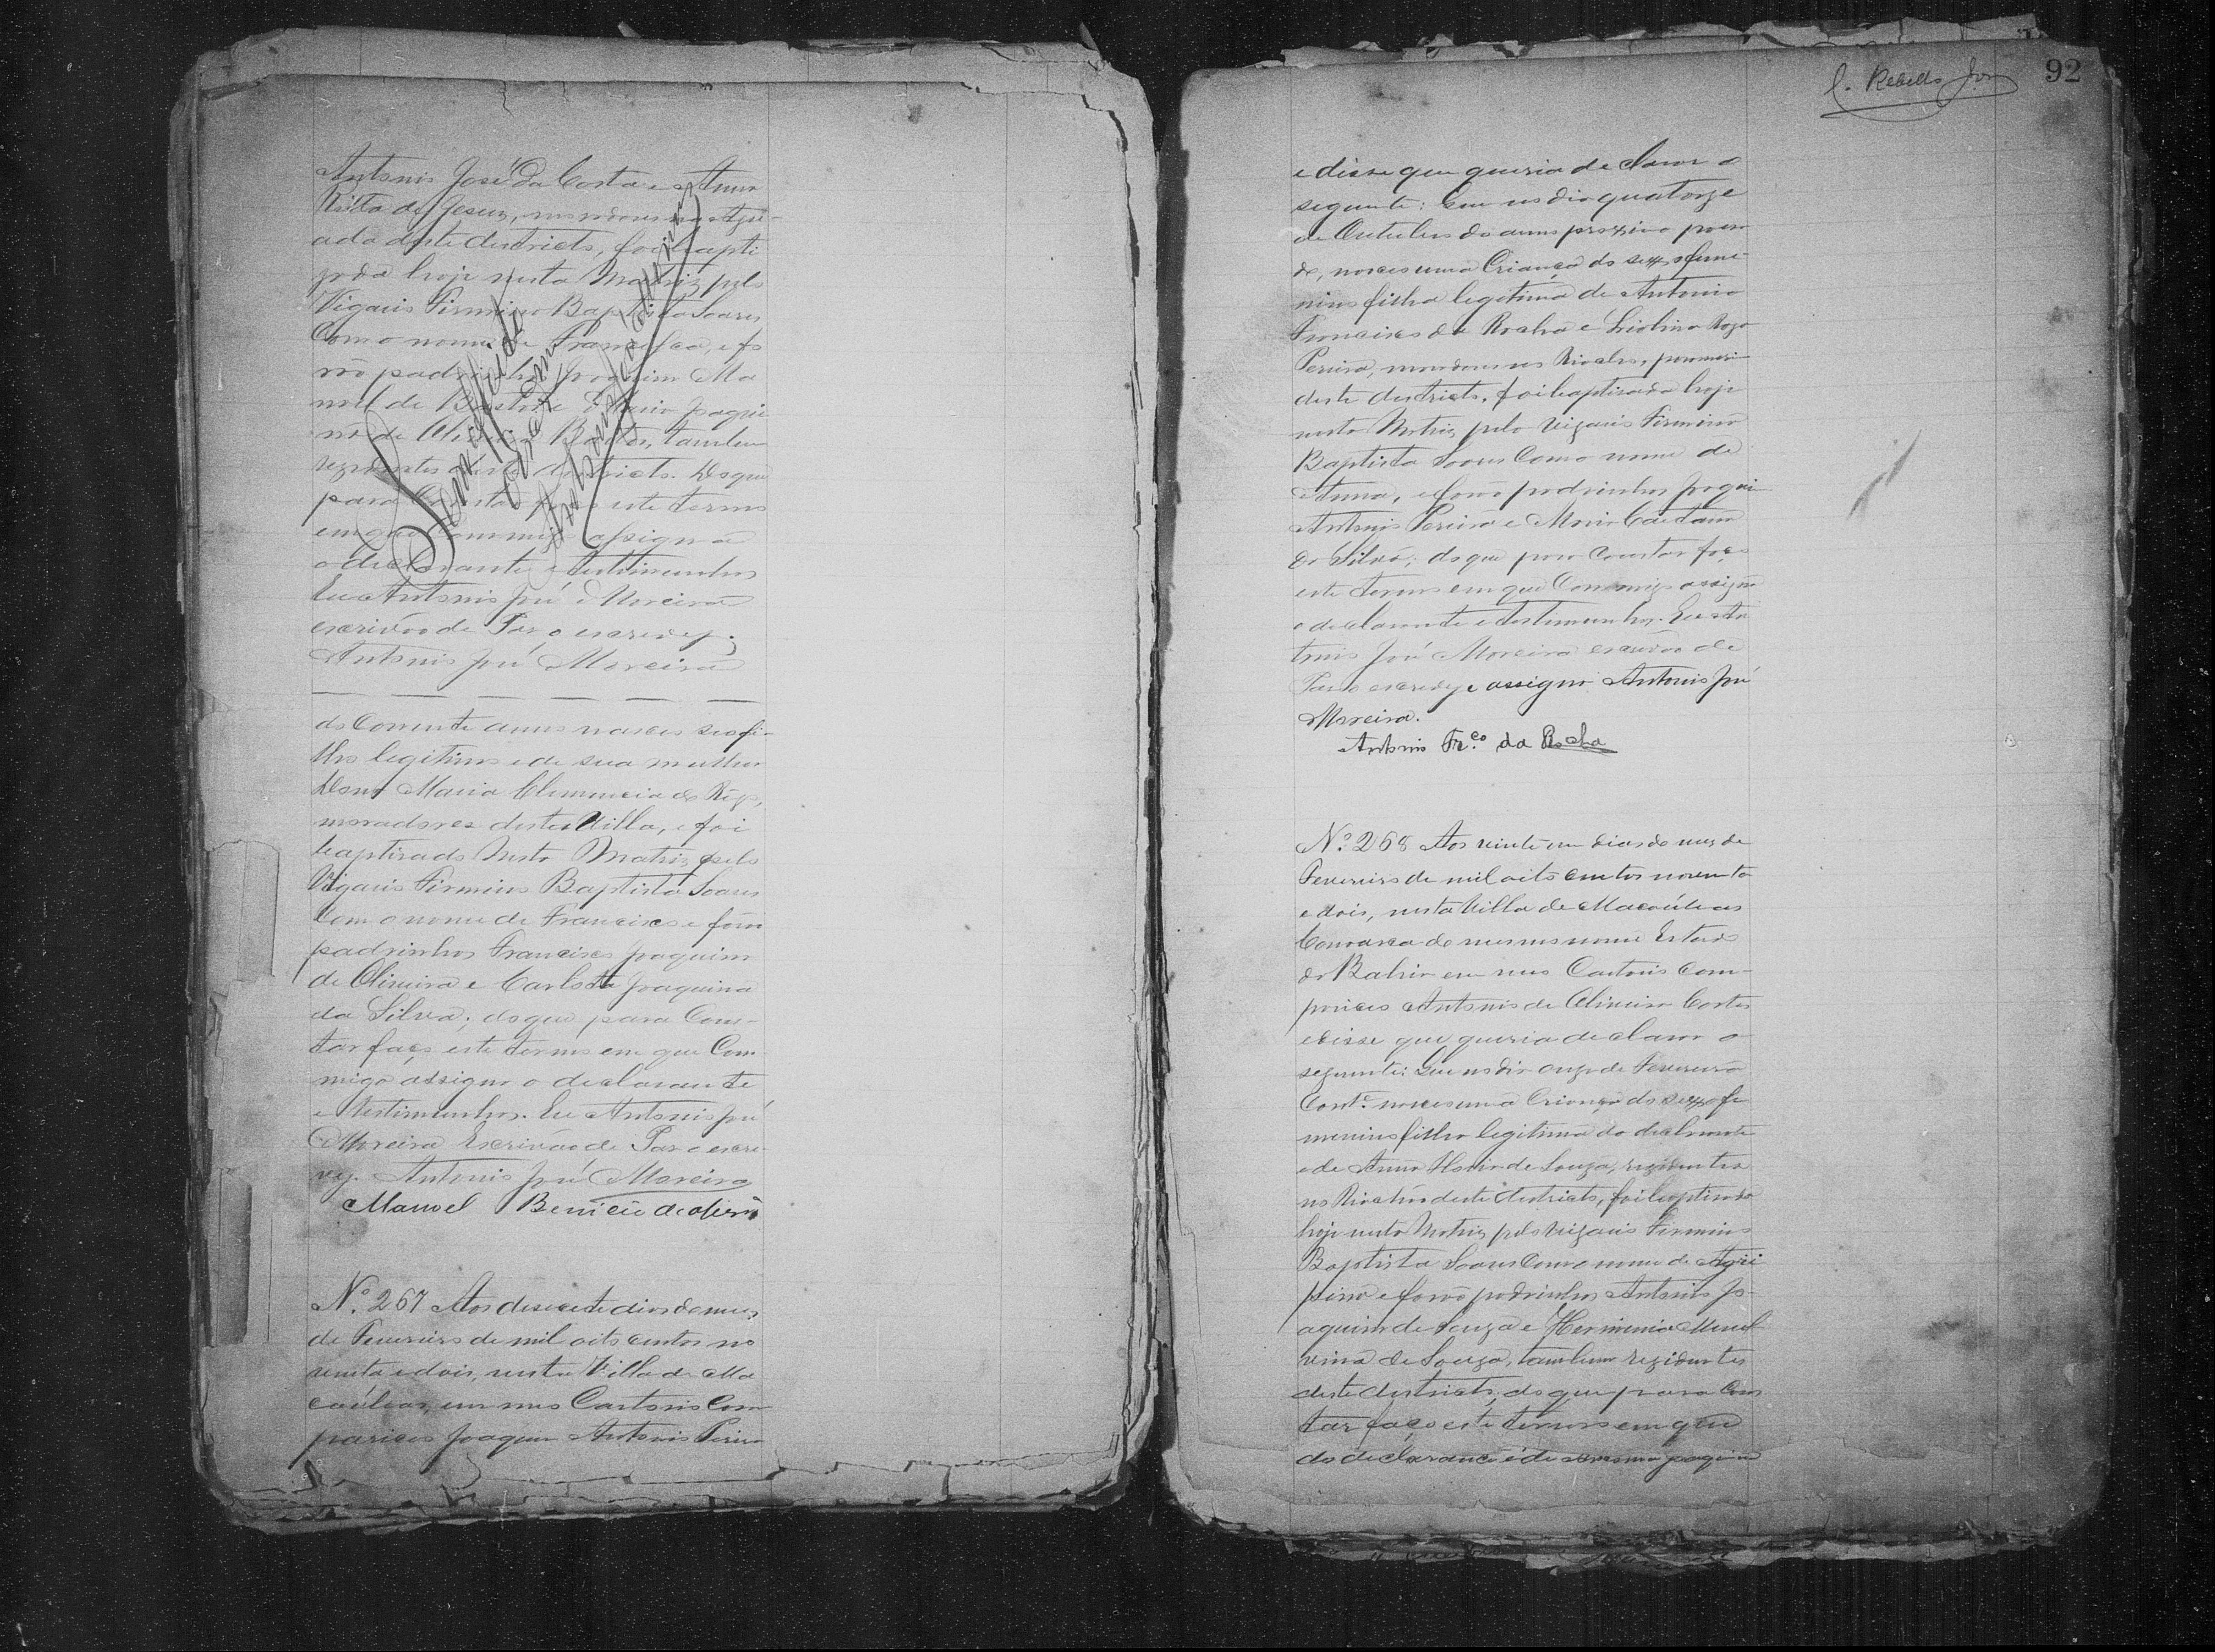 Antonio José da Costa e Anna
Ritta de Jesus, moradores na Agu-
ada deste districto, foi bapti
zada hoje nesta Matriz pelo
Vigario Firmino Baptista Soares
Com o nome de Francisca, e fo
rão padrinhos Joaquim Ma
noel de Bastos e Maria Joaqui
na de Oliveira Bastos, tambem
rezidentes deste districto. Do que
para Constar faço este termo
em que commigo assigna
o declarante e testimunhas
Eu Antonio José Moreira
escrivão de Paz o escrevy.
Antonio José Moreira
Sem effeito
do Corrente anno nasceu seo fi-
lho legitimo e de sua mulher
Dona Maria Clemencia do Rego,
moradores desta Villa, e foi
baptisado nesta Matriz pelo
Vigario Firmino Baptista Soares
Com o nome de Francisco e forão
padrinhos Francisco Joaquim
de Oliveira e Carlota Joaquina
da Silva; do que para Cons-
tar faço este termo em que Com
migo assigna o declarante
e testimunhas. Eu Antonio José
Moreira Escrivão de Paz o escre-
vy. Antonio José Moreira
Manoel Benicio de Olivrª
Nº 267 Aos desesete dias do mez
de Fevereiro de mil oito centos no
venta e dois, nesta Villa de Ma
caúbas, em meo Cartorio Com
pariceo Joaquim Antonio Pereira
C. Rebello Jor
92
e disse que queria declarar o
seguinte: Que no dia quatorze
de Outubro do anno proximo passa
do, nasceo uma Criança do sexo feme-
nino filha legitima de Antonio
Francisco da Rocha e Rosa
Pereira, moradores no Riacho
deste districto, foi baptisada hoje
nesta Matriz pelo Vigario Firmino
Baptista Soares Com o nome de
Anna, e forão padrinhos Joaquim
Antonio Pereira e Maria Caetana
da Silva; do que para Constar faço
este termo em que Commigo assigna
o declarante e testimunhas. Eu An
tonio José Moreira escrivão de
Paz o escrevy e assigno. Antonio José
Moreira.
Antonio Frco. da Rocha
Nº 268 Aos vinte um dias do mez de
Fevereiro de mil oito centos noventa
e dois, nesta Villa de Macaúbas
Comarca do mesmo nome Estado
da Bahia em meo Cartorio Com-
pariceo Antonio de Oliveira Cortes
e disse que queria declarar o
seguinte: Que no dia onze de Fevereiro
Corrte. nasceo uma Criança do sexo fe
menino filha legitima do declarante
e de Anna Maria de Souza, rezidentes
no Riachão deste districto, foi baptisada
hoje nesta Matriz pelo Vigario Firmino
Baptista Soares Com o nome de Agri
pina e forão padrinhos Antonio Jo-
aquim de Souza e Herminia
de Souza, tambem rezidentes
deste districto; do que para Cons
tar faço este termo em que